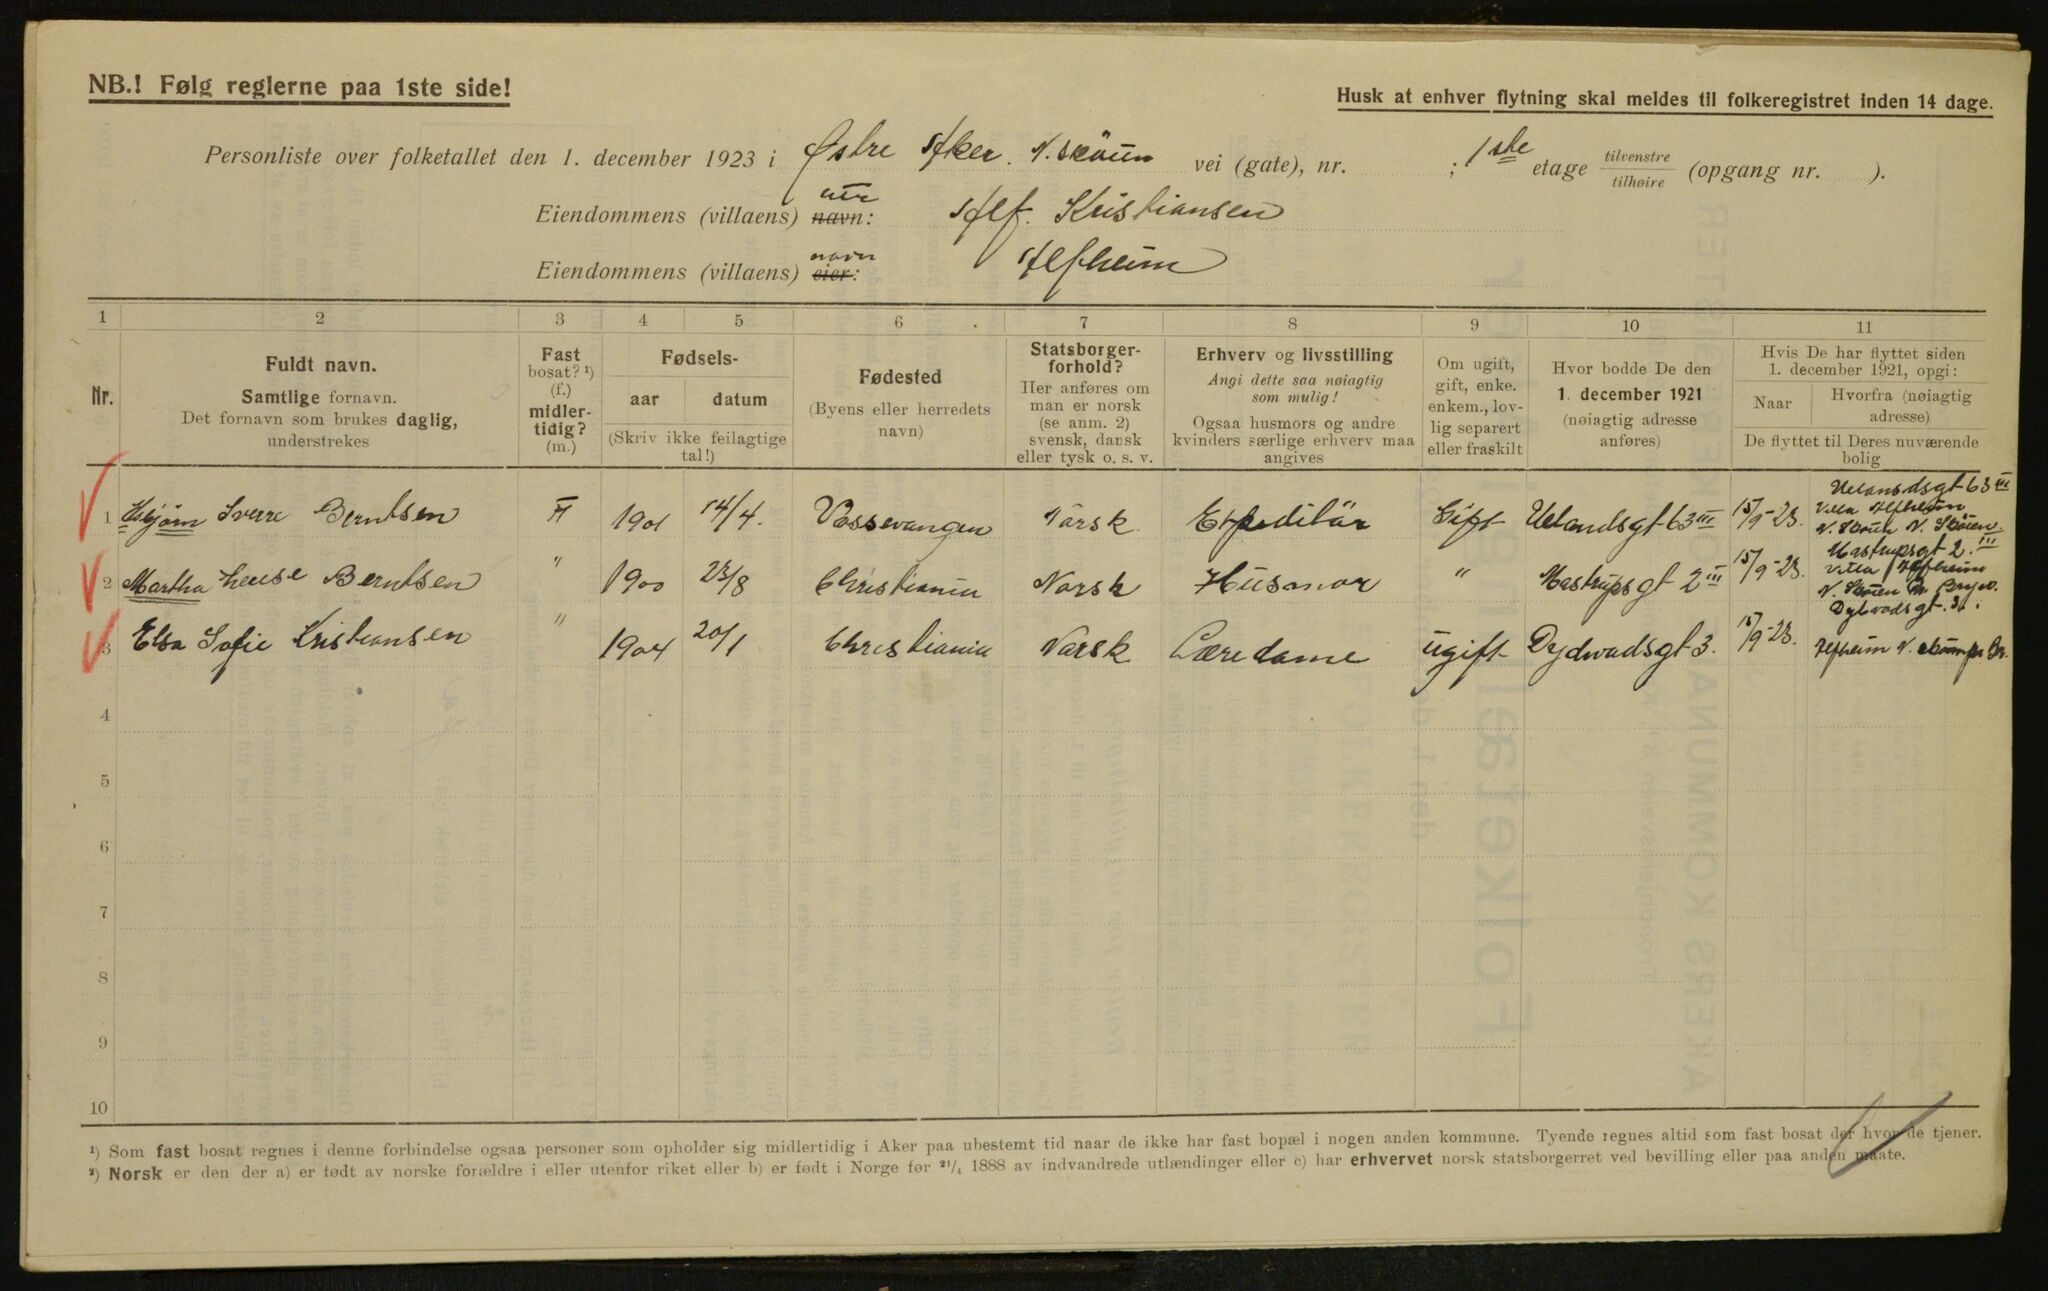 NB.! Følg reglerne paa 1ste side!
Husk at enhver flytning skal meldes til folkeregistret inden 14 dage.
Personliste over folketallet den 1. december 1923 i Østre Aker. N. Sköien vei (gate), nr. ; 1ste etage tilvenstre tilhøire (opgang nr. ).
eier
Eiendommens (villaens) navn: Alf. Kristiansen
navn
Eiendommens (villaens) eier: Alfheim
1 2 3 4 5 6 7 8 9 10 11
Nr.
Fuldt navn.
Samtlige fornavn.
Det fornavn som brukes daglig, understrekes
Fast bosat? ¹) (f.) midler-tidig? (m.)
Fødsels-
aar datum
(Skriv ikke feilagtige tal!)
Fødested
(Byens eller herredets navn)
Statsborger-forhold?
Her anføres om man er norsk (se anm. 2) svensk, dansk eller tysk o. s. v.
Erhverv og livsstilling
Angi dette saa nøiagtig som mulig!
Ogsaa husmors og andre kvinders særlige erhverv maa angives
Om ugift, gift, enke. enkem., lov-lig separert eller fraskilt
Hvor bodde De den 1. december 1921
(nøiagtig adresse anføres)
Hvis De har flyttet siden 1. december 1921, opgi:
Naar Hvorfra (nøiagtig adresse)
De flyttet til Deres nuværende bolig
1 Sverre Berntsen F 1901 14/4. Vossevangen Norsk Expeditör Gift Uelandsgt 63 III 15/9-23. Uelandsgt 63 III
Villa Alfheim
N. Sköien
2 Martha Berntsen " 1900 23/8 Christiania Norsk Husmor " Mastrupsgt 2 III 15/9-23. Mastrupsgt 2. III
Villa Alfheim
N. Sköien pr Bryn.
3 Elsa Sofie Kristiansen " 1904 20/1 Christiania Norsk Læredame ugift Dybvadsgt 3. 15/9-23. Dybvadsgt. 3.
Alfheim N. Sköien pr Br.
4
5
6
7
8
9
10
¹) Som fast bosat regnes i denne forbindelse ogsaa personer som opholder sig midlertidig i Aker paa ubestemt tid naar de ikke har fast bopæl i nogen anden kommune. Tyende regnes altid som fast bosat der hvor de tjener.
²) Norsk er den der a) er født av norske forældre i eller utenfor riket eller b) er født i Norge før ²¹/₄ 1888 av indvandrede utlændinger eller c) har erhvervet norsk statsborgerret ved bevilling eller paa anden maate.